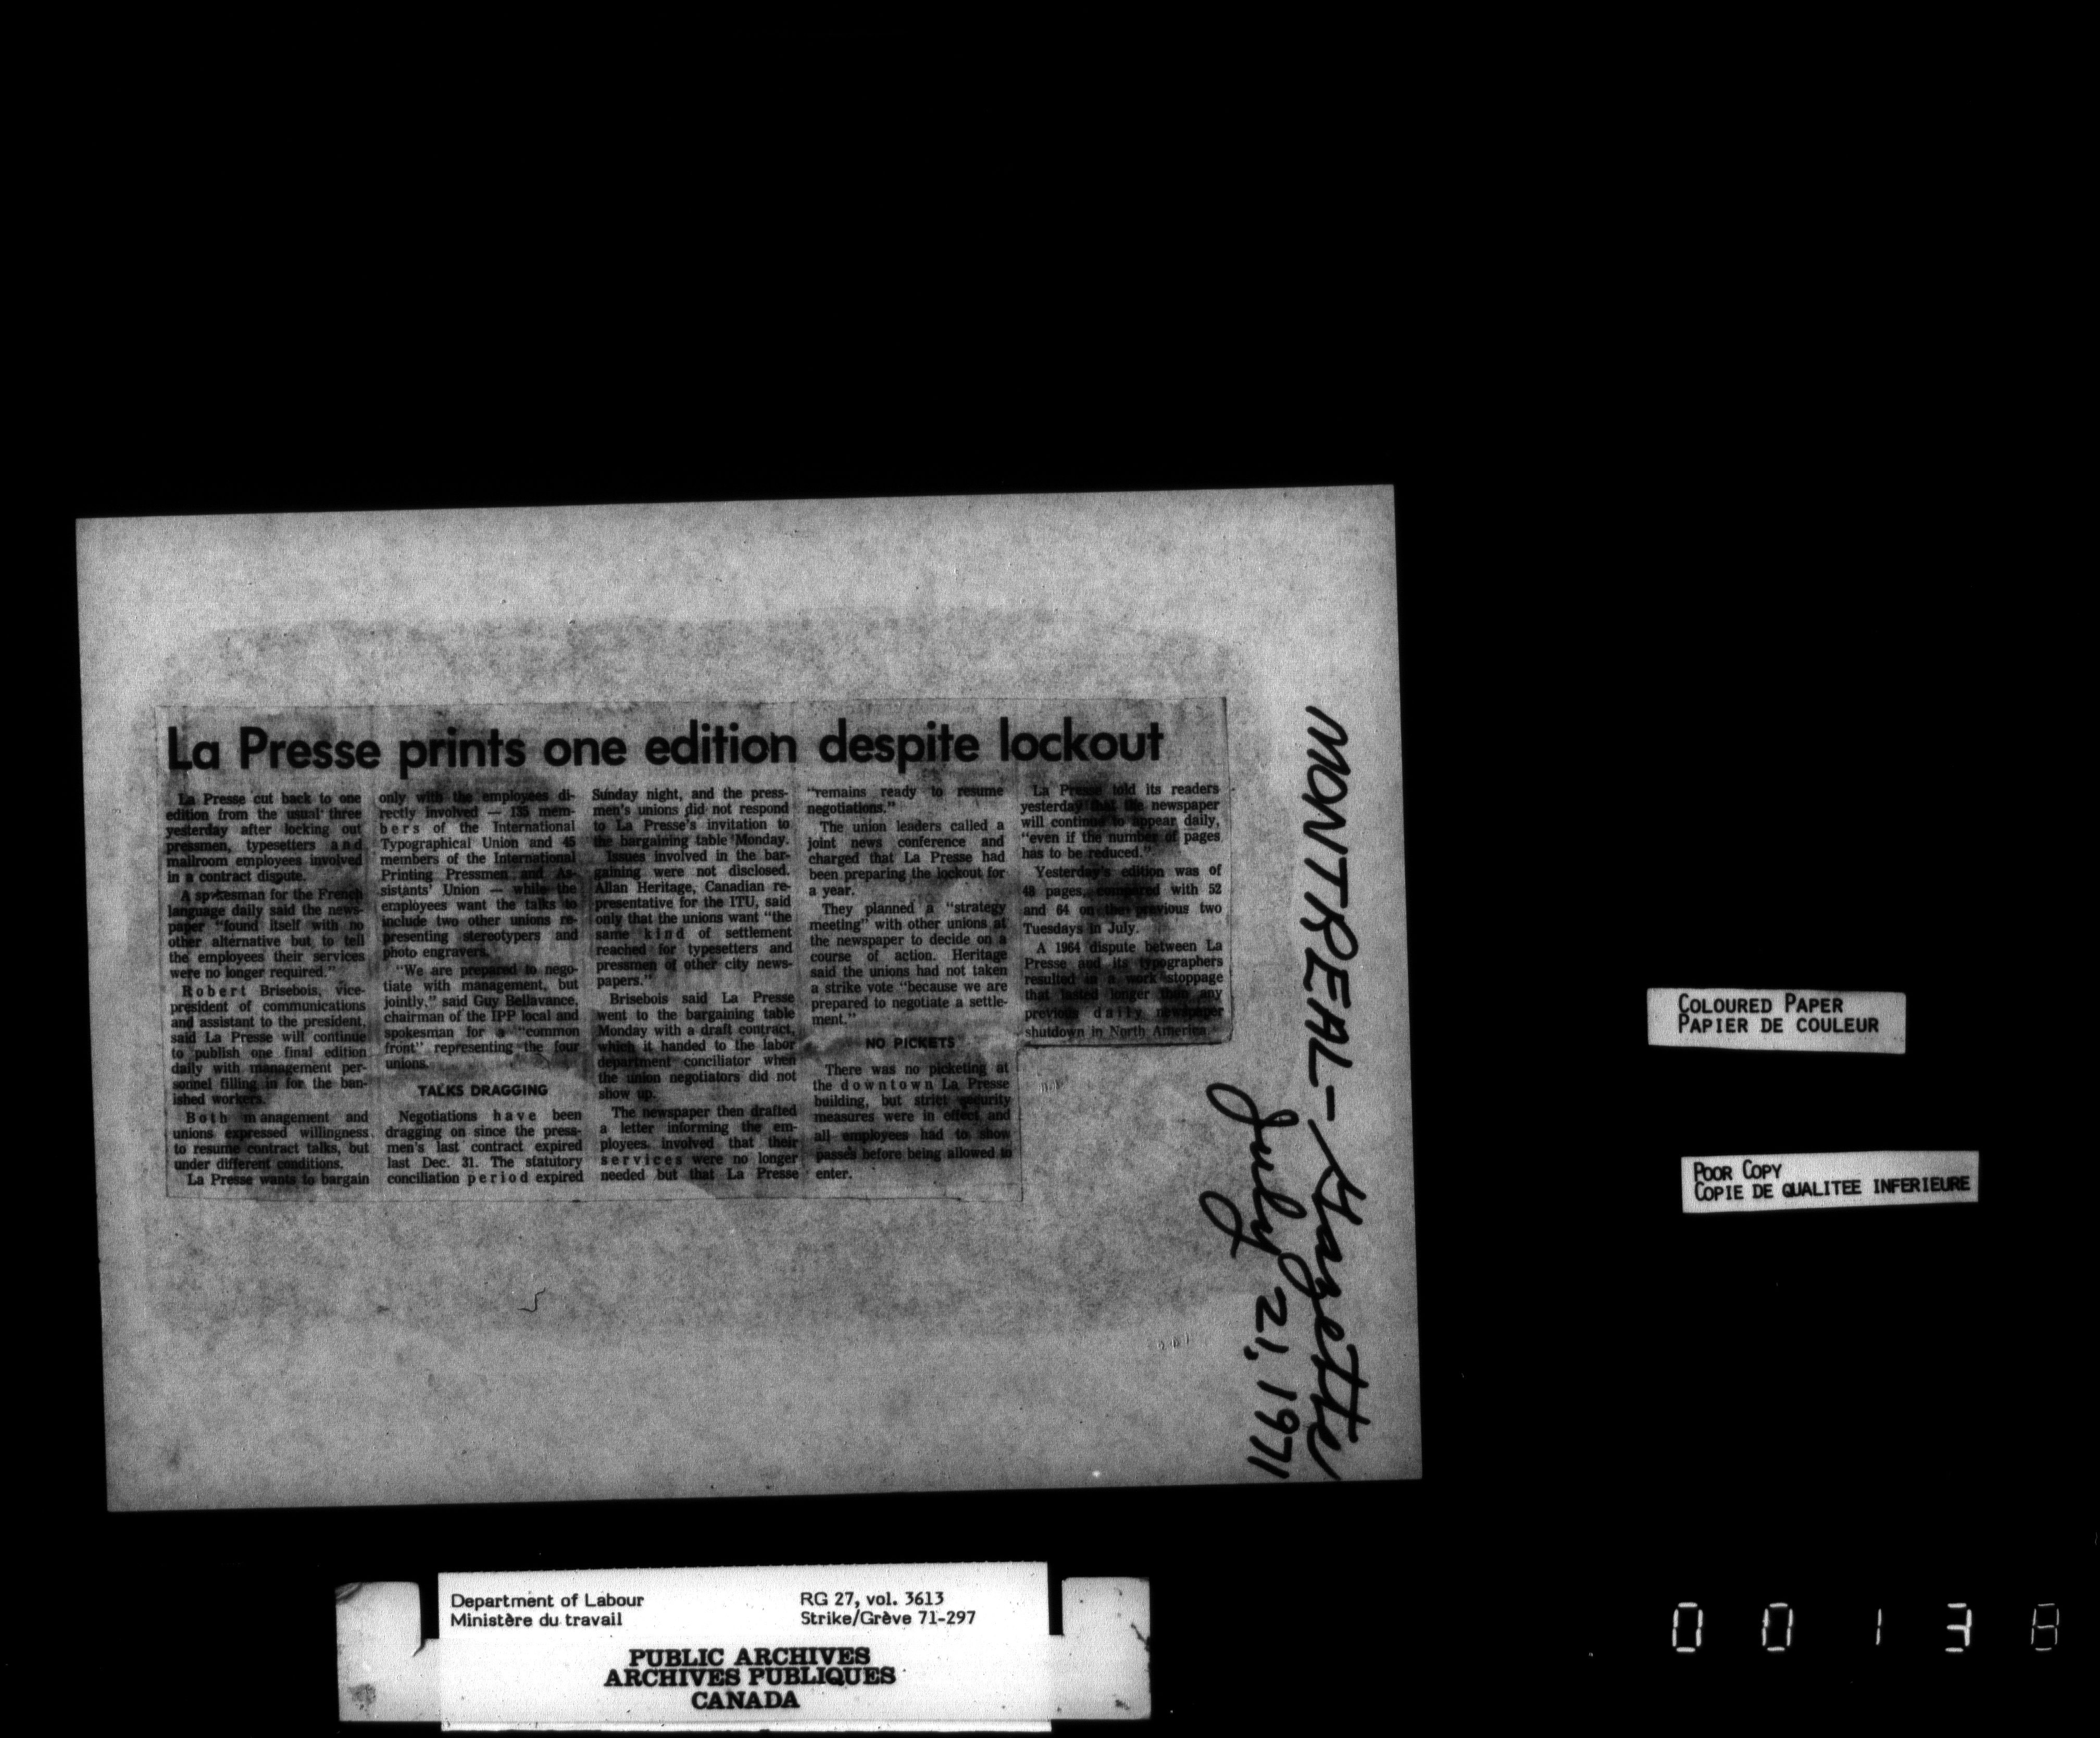 La Presse prints one edition despite lockout
La Presse cut back to one
edition from the usual three
yesterday after locking out
pressmen, typesetters and
mailroom employees involved
in a contract dispute.
A spokesman for the French
language daily said the news-
paper "found itself with no
other alternative but to tell
the employees their services
were no longer required."
Robert Brisebois, vice-
president of communications
and assistant to the president,
said La Presse will continue
to publish one final edition
daily with management per-
sonnel filling in for the ban-
ished workers.
Both management and
unions expressed willingness
to resume contract talks, but
under different conditions.
La Presse wants to bargain
only with the employees di-
rectly involved — 135 mem-
bers of the International
Typographical Union and 45
members of the International
Printing Pressmen and As-
sistants' Union — while the
employees want the talks to
include two other unions re-
presenting stereotypers and
photo engravers.
"We are prepared to nego-
tiate with management, but
jointly," said Guy Bellavance,
chairman of the IPP local and
spokesman for a "common
front" representing the four
unions.
TALKS DRAGGING
Negotiations have been
dragging on since the press-
men's last contract expired
last Dec. 31. The statutory
conciliation period expired
Sunday night, and the press-
men's unions did not respond
to La Presse's invitation to
the bargaining table Monday.
Issues involved in the bar-
gaining were not disclosed.
Allan Heritage, Canadian re-
presentative for the ITU, said
only that the unions want "the
same kind of settlement
reached for typesetters and
pressmen of other city news-
papers."
Brisebois said La Presse
went to the bargaining table
Monday with a draft contract,
which it handed to the labor
department conciliator when
the union negotiators did not
show up.
The newspaper then drafted
a letter informing the em-
ployees involved that their
services were no longer
needed but that La Presse
"remains ready to resume
negotiations."
The union leaders called a
joint news conference and
charged that La Presse had
been preparing the lockout for
a year.
They planned a "strategy
meeting" with other unions at
the newspaper to decide on a
course of action. Heritage
said the unions had not taken
a strike vote "because we are
prepared to negotiate a settle-
ment."
NO PICKETS
There was no picketing at
the downtown La Presse
building, but strict security
measures were in effect and
all employees had to show
passes before being allowed to
enter.
La Presse told its readers
yesterday that the newspaper
will continue to appear daily,
"even if the number of pages
has to be reduced."
Yesterday's edition was of
48 pages, compared with 52
and 64 on the previous two
Tuesdays in July.
A 1964 dispute between La
Presse and its typographers
resulted in a work stoppage
that lasted longer than any
previous daily newspaper
shutdown in North America.
MONTREAL - Gazette
July 21, 1971
COLOURED PAPER
PAPIER DE COULEUR
POOR COPY
COPIE DE QUALITEE INFERIEURE
Department of Labour
Ministère du travail
RG 27, vol. 3613
Strike/Grève 71-297
PUBLIC ARCHIVES
ARCHIVES PUBLIQUES
CANADA
0 0 1 3